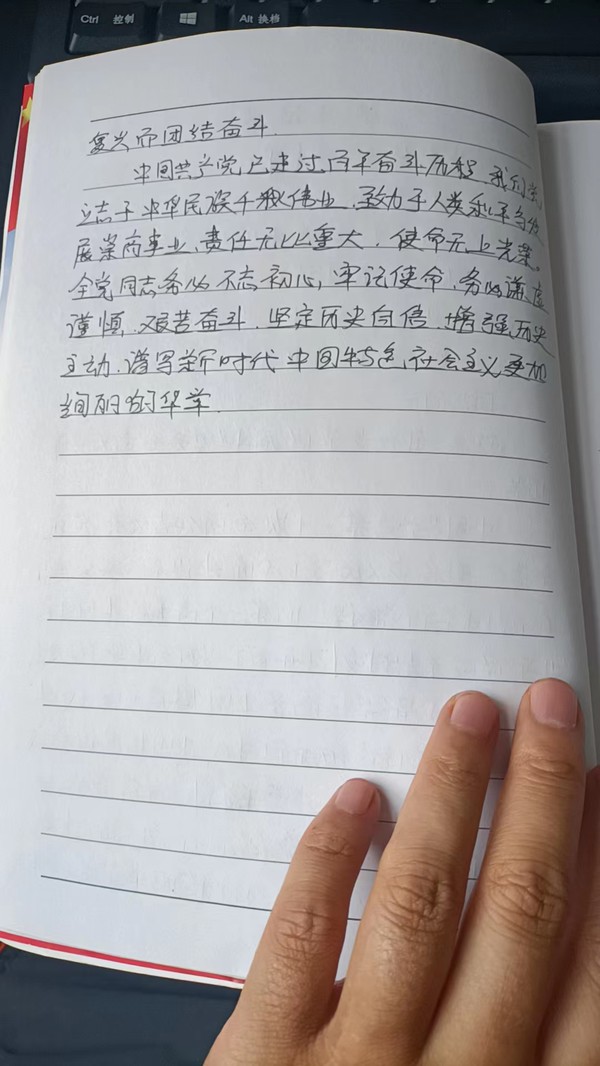 Ctrl 控制
Alt 换档
复兴而团结奋斗.
中国共产党已走过百年奋斗历程.我们党
立志于中华民族千秋伟业,致力于人类和平与发
展崇高事业,责任无比重大,使命无上光荣。
全党同志务必不忘初心,牢记使命,务必谦虚
谨慎,艰苦奋斗,坚定历史自信,增强历史
主动,谱写新时代中国特色社会主义更加
绚丽的华章.